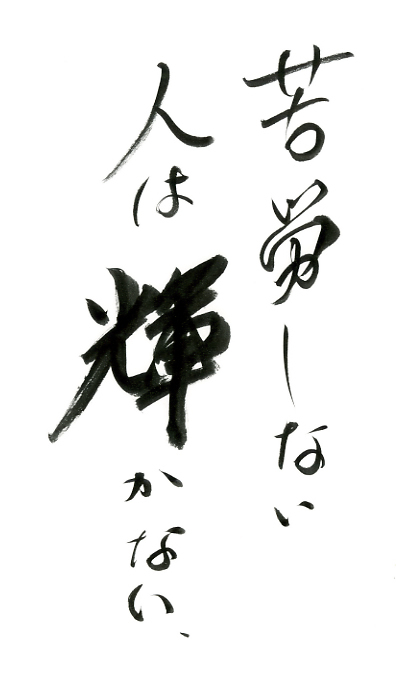 苦労しない
人は輝かない、